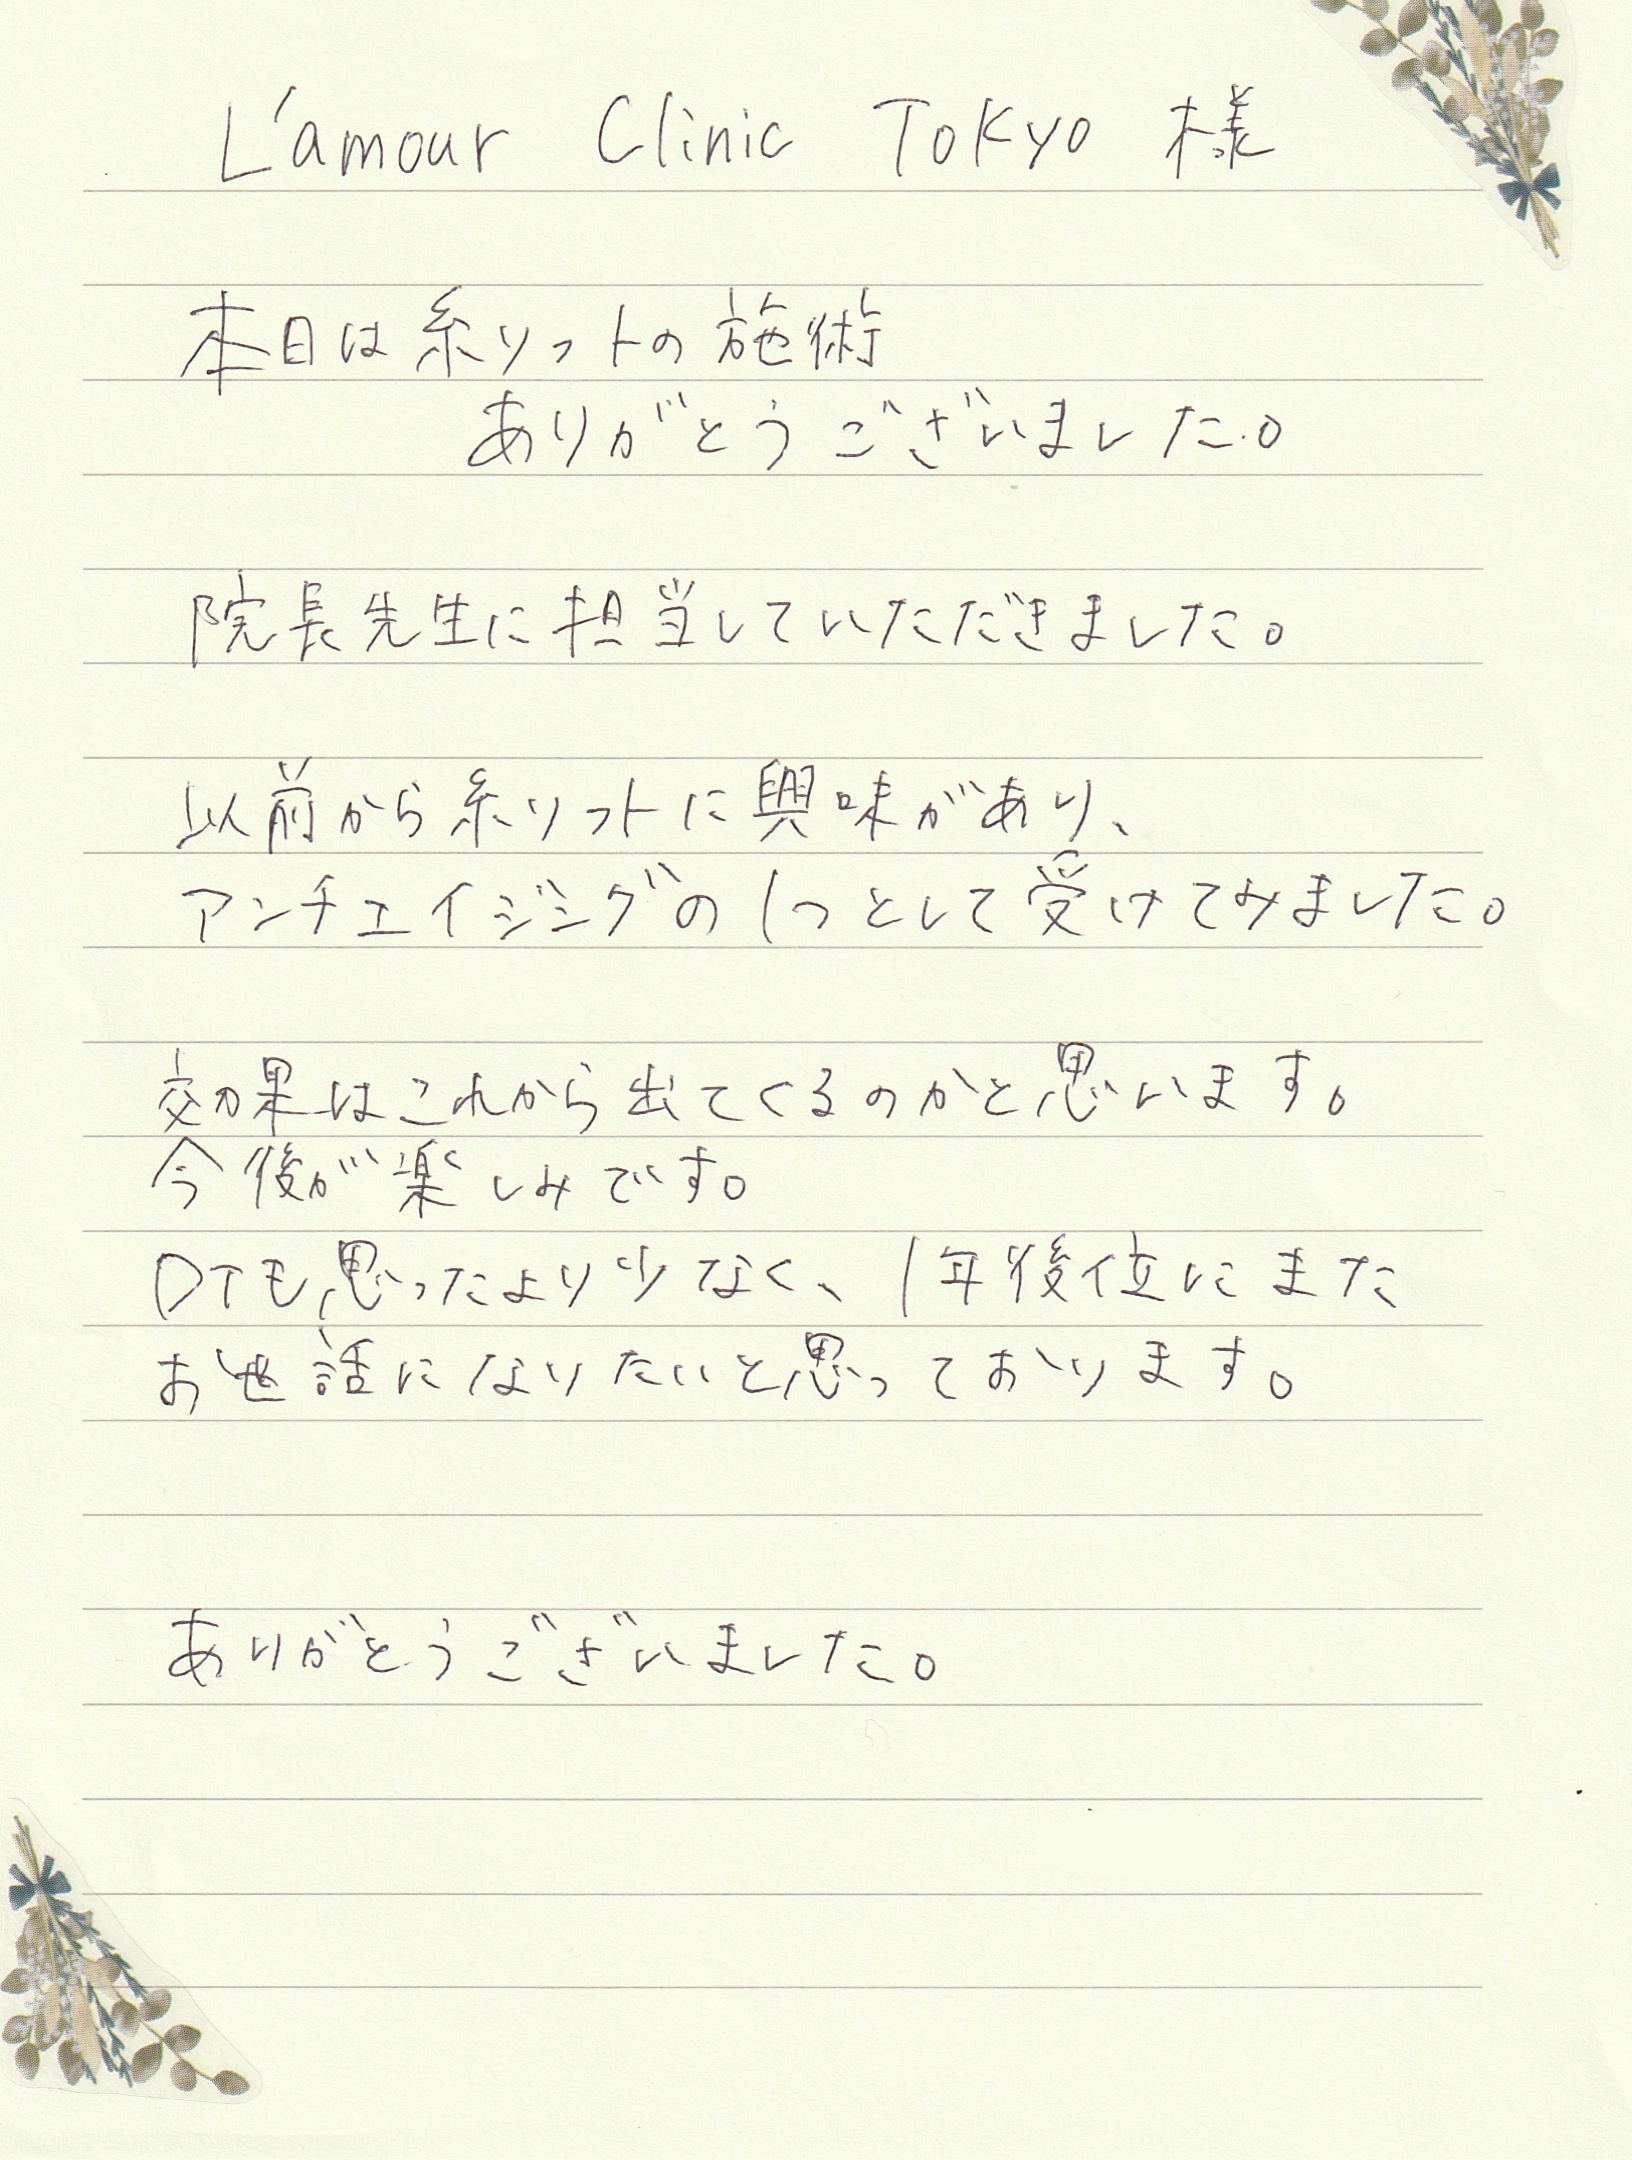 L'amour Clinic Tokyo 様
本日は糸リフトの施術
ありがとうございました。
院長先生に担当していただきました。
以前から糸リフトに興味があり、
アンチエイジングの1つとして受けてみました。
効果はこれから出てくるのかと思います。
今後が楽しみです。
DTも思ったより少なく、1年後位にまた
お世話になりたいと思っております。
ありがとうございました。